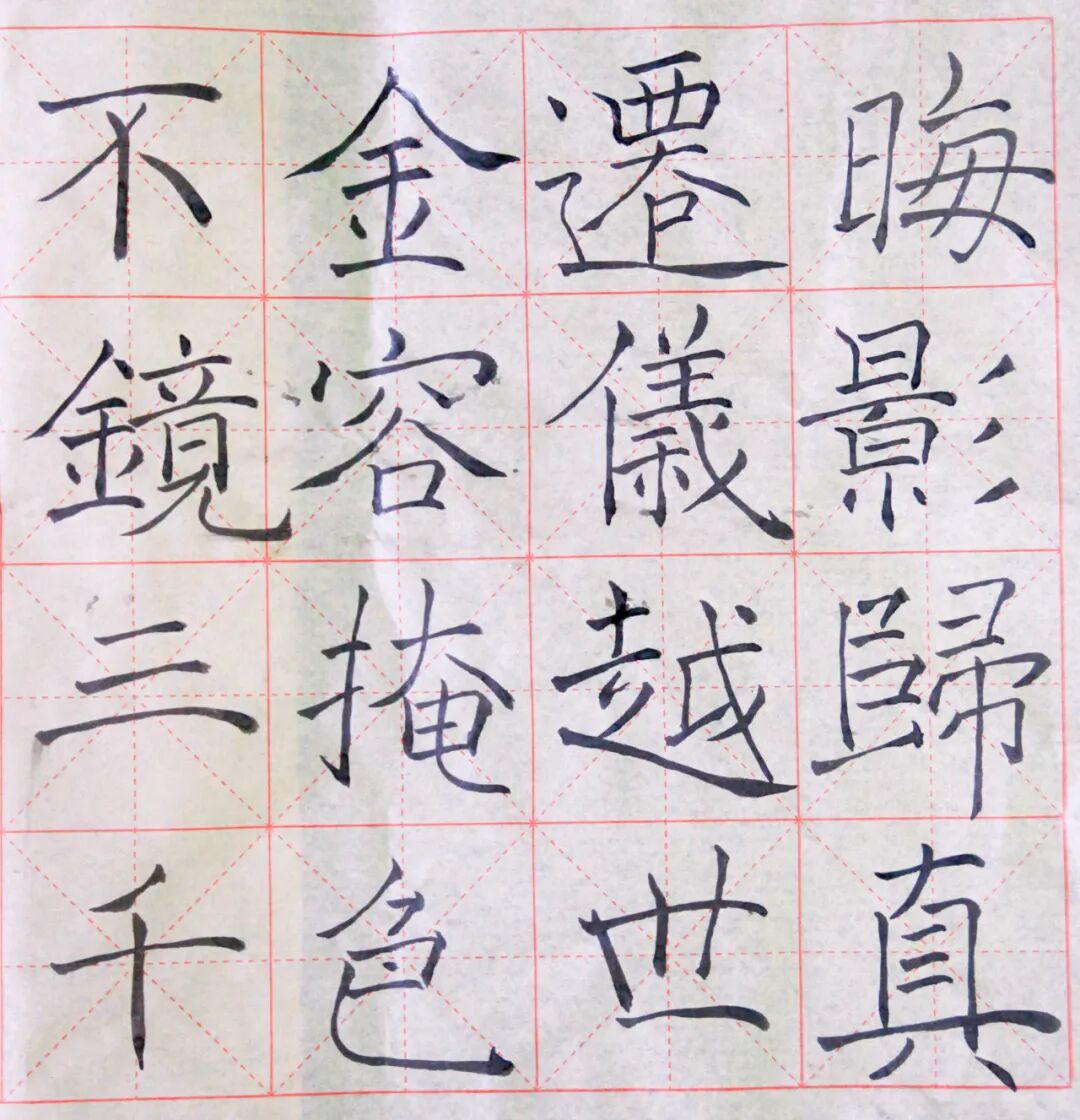 晦影歸真
遷儀越世
金容掩色
不鏡三千